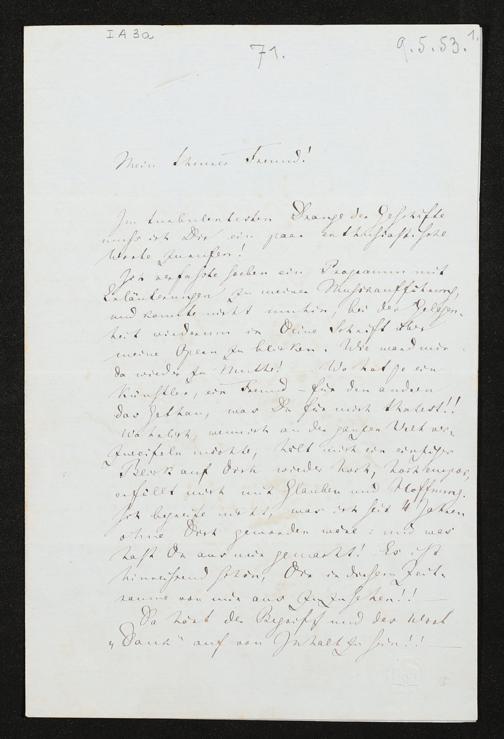 I A 3a
71.
9.5.53.
1.
Mein theurer Freund!
Im turbulentesten Drange der Geschäfte
muß ich Dir ein paar enthusiastische
Worte zurufen!
Ich verfaßte soeben ein Programm mit
Erläuterungen zu meiner Musikaufführung,
und konnte nicht umhin, bei der Gelegen-
heit wiederum in Deine Schrift über
meine Opern zu blicken. Wie ward mir
da wieder zu Muthe! Wo hat je ein
Künstler, ein Freund für den anderen
das gethan, was Du für mich thatest!!
Wahrlich, wenn ich an der ganzen Welt ver-
zweifeln möchte, hält mich ein einziger
Blick auf Dich wieder hoch, hoch empor,
erfüllt mich mit Glauben und Hoffnung.
Ich begreife nicht, was ich seit 4 Jahren
ohne Dich geworden wäre: und was
hast Du aus mir gemacht! Es ist
hinreißend schön, Dir in diesem Zeit-
raume von mir aus zuzusehen!!
Da hört der Begriff und das Wort
„Dank“ auf von Inhalt zu sein!!